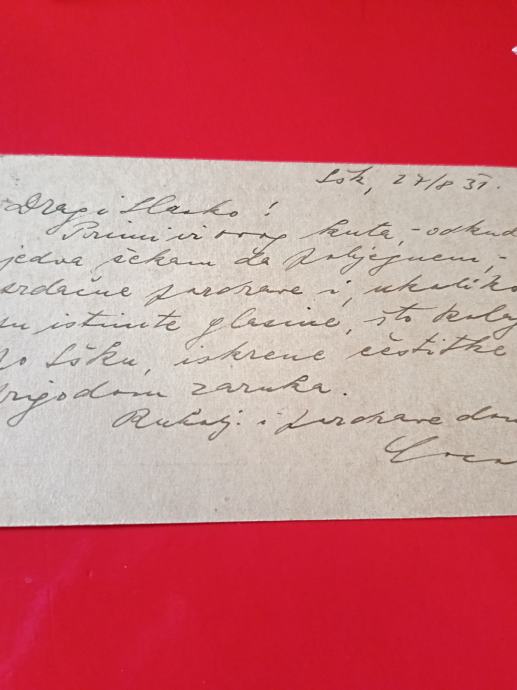 Ššk, 27/8 31.
Dragi Slavko!
Primi iz ovog kuta, - odkud
jedva čekam da pobjegnem, -
srdačne pozdrave i, ukoliko
su istinite glasine, što kolaj
po Ššku, iskrene čestitke
prigodom zaruka.
Rukolj. i pozdrave dom